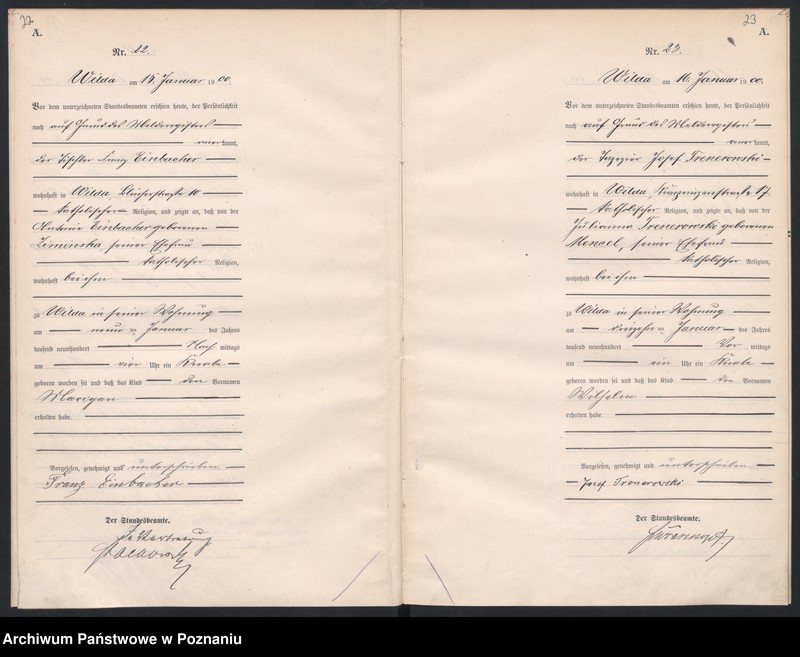 22
A.
Nr. 22.
Wilda am 15. Januar 1900.
Vor dem unterzeichneten Standesbeamten erschien heute, der Persönlichkeit
nach auf Grund des Melderegisters
anerkannt,
der Tischler Franz Einbacher
wohnhaft in Wilda, Blücherstraße 10
katholischer Religion, und zeigte an, daß von der
Antonie Einbacher geborenen
Ziminska, seiner Ehefrau
katholischer Religion,
wohnhaft bei ihm
zu Wilda in seiner Wohnung
am neun ten Januar des Jahres
tausend neunhundert Nach mittags
um vier Uhr ein Knabe
geboren worden sei und daß das Kind den Vornamen
Maryan
erhalten habe.
Vorgelesen, genehmigt und unterschrieben
Franz Einbacher
Der Standesbeamte.
In Vertretung
23
A.
Nr. 23.
Wilda am 16. Januar 1900.
Vor dem unterzeichneten Standesbeamten erschien heute, der Persönlichkeit
nach auf Grund des Melderegisters
anerkannt,
der Tapezier Josef Trenerowski
wohnhaft in Wilda, 17
katholischer Religion, und zeigte an, daß von der
Julianna Trenerowski geborenen
Mencel, seiner Ehefrau
katholischer Religion,
wohnhaft bei ihm
zu Wilda in seiner Wohnung
am dreizehn ten Januar des Jahres
tausend neunhundert Vor mittags
um ein Uhr ein Knabe
geboren worden sei und daß das Kind den Vornamen
Wilhelm
erhalten habe.
Vorgelesen, genehmigt und unterschrieben
Josef Trenerowski
Der Standesbeamte.
Archiwum Państwowe w Poznaniu